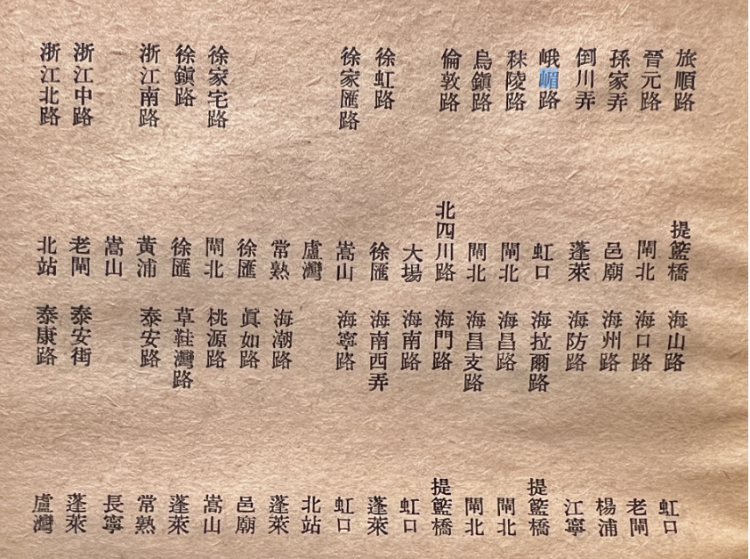 旅順路 提籃橋
晉元路 閘北
孫家弄 邑廟
倒川弄 蓬萊
峨嵋路 虹口
秣陵路 閘北
烏鎮路 閘北
倫敦路 北四川路
大場
徐虹路 徐匯
徐家匯路 嵩山
盧灣
常熟
徐匯
徐家宅路 閘北
徐鎮路 徐匯
浙江南路 黃浦
嵩山
浙江中路 老閘
浙江北路 北站
海山路 虹口
海口路 老閘
海州路 楊浦
海防路 江寧
海拉爾路 提籃橋
海昌路 閘北
海昌支路 閘北
海門路 提籃橋
海南路 虹口
海南西弄 蓬萊
海寧路 虹口
北站
海潮路 蓬萊
眞如路 邑廟
桃源路 嵩山
草鞋灣路 蓬萊
泰安路 常熟
長寧
泰安街 蓬萊
泰康路 盧灣